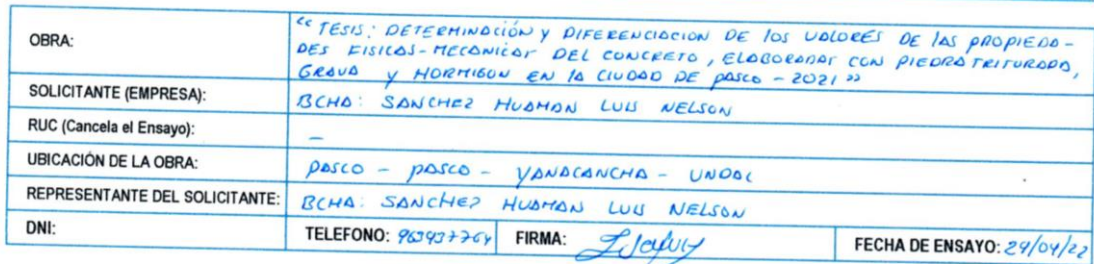 OBRA: "TESIS: DETERMINACIÓN Y DIFERENCIACION DE LOS VALORES DE LAS PROPIEDA-
DES FISICAS-MECANICAS DEL CONCRETO, ELABORADAS CON PIEDRA TRITURADA,
GRAVA Y HORMIGON EN LA CIUDAD DE PASCO - 2021"
SOLICITANTE (EMPRESA): BCHA: SANCHEZ HUAMAN LUIS NELSON
RUC (Cancela el Ensayo): -
UBICACIÓN DE LA OBRA: PASCO - PASCO - YANACANCHA - UNDAC
REPRESENTANTE DEL SOLICITANTE: BCHA: SANCHEZ HUAMAN LUIS NELSON
DNI: TELEFONO: 963937764 FIRMA: FECHA DE ENSAYO: 29/04/22